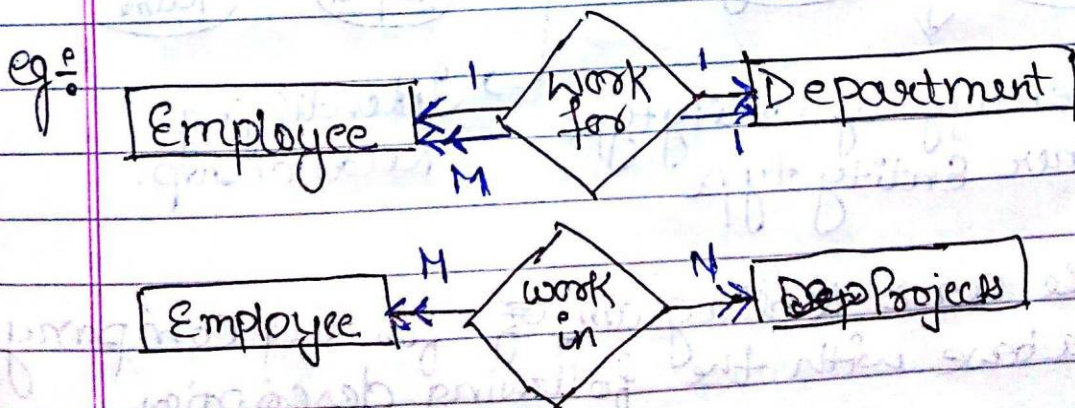 eg:
1 1
Employee work for Department
M 1
M N
Employee work in Projects